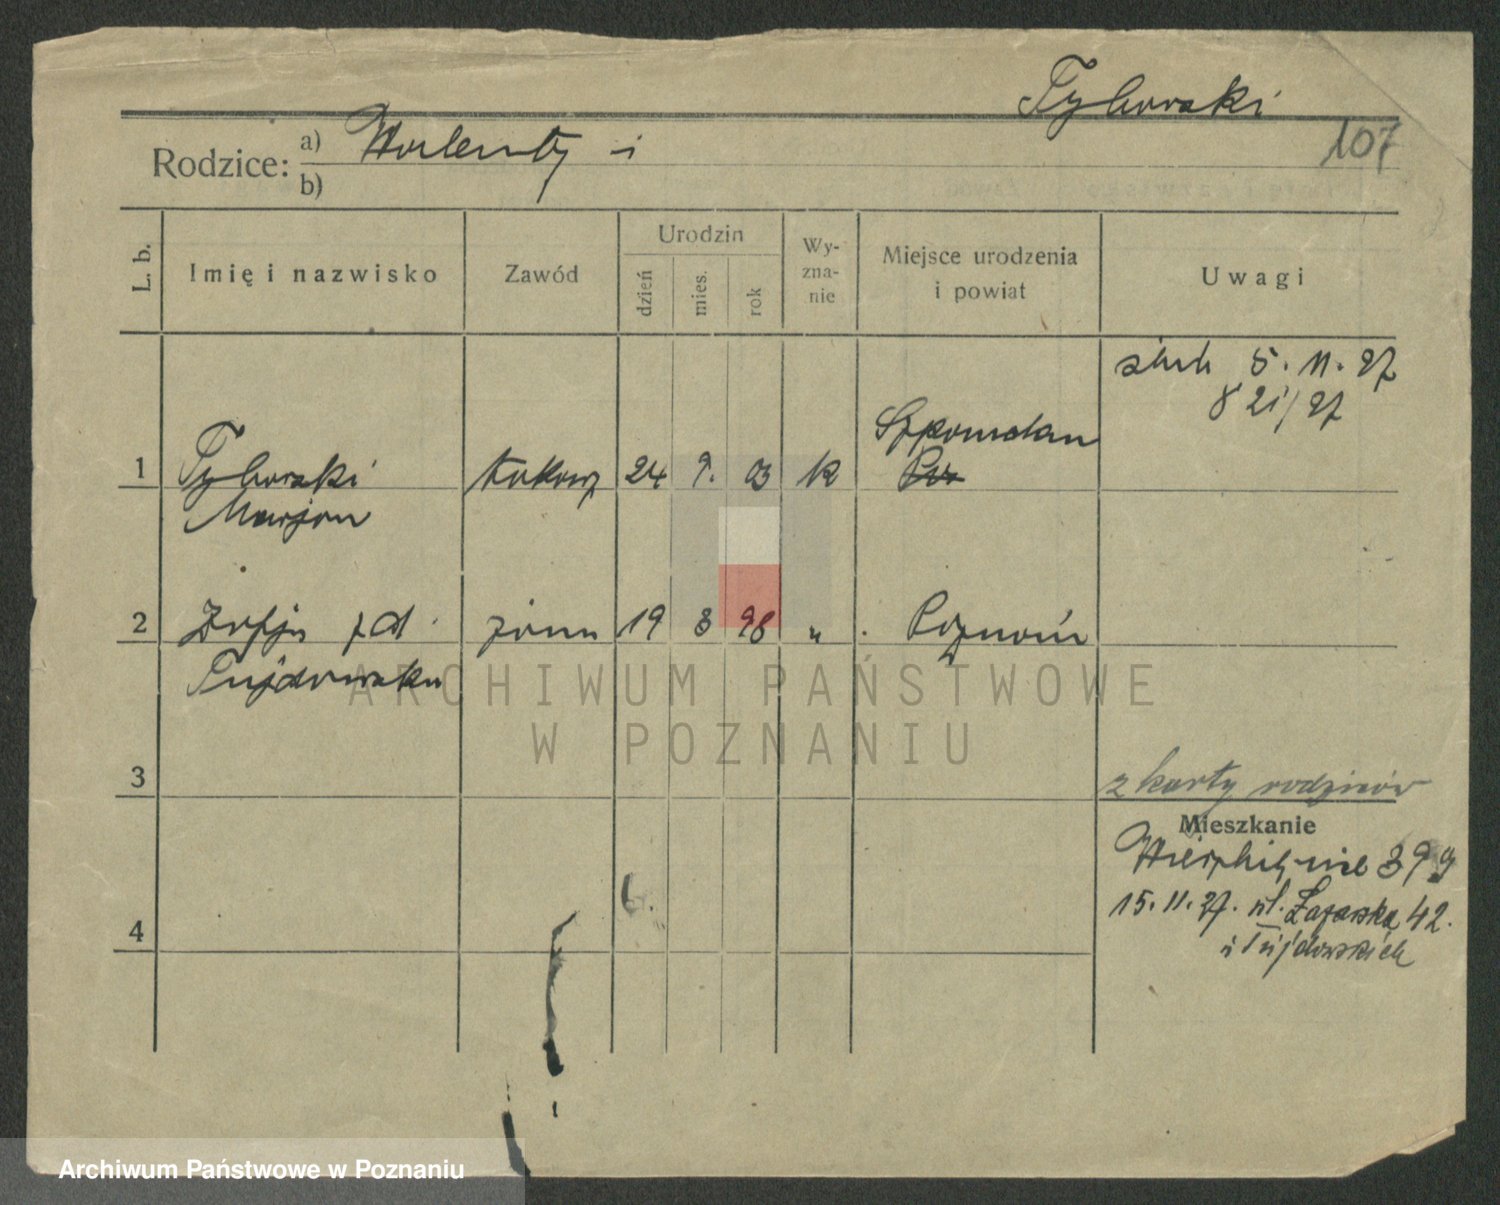 Tyborski
107
Rodzice: a) Walenty i
b)
L. b. Imię i nazwisko Zawód Urodzin dzień mies. rok Wy-zna-nie Miejsce urodzenia i powiat Uwagi
ślub 5. 11. 27
821/27
Szpandau
1 Tyborski tokarz 24 9. 03 k
Marjan
2 Zofja zd. żona 19 8 98 " Poznań
Tujdowska
ARCHIWUM PAŃSTWOWE
W POZNANIU
3
z karty rodziców
Mieszkanie
Wierzbięcice
15. 11. 27. ul. Łazarska 42.
u Tujdowskich
4
Archiwum Państwowe w Poznaniu